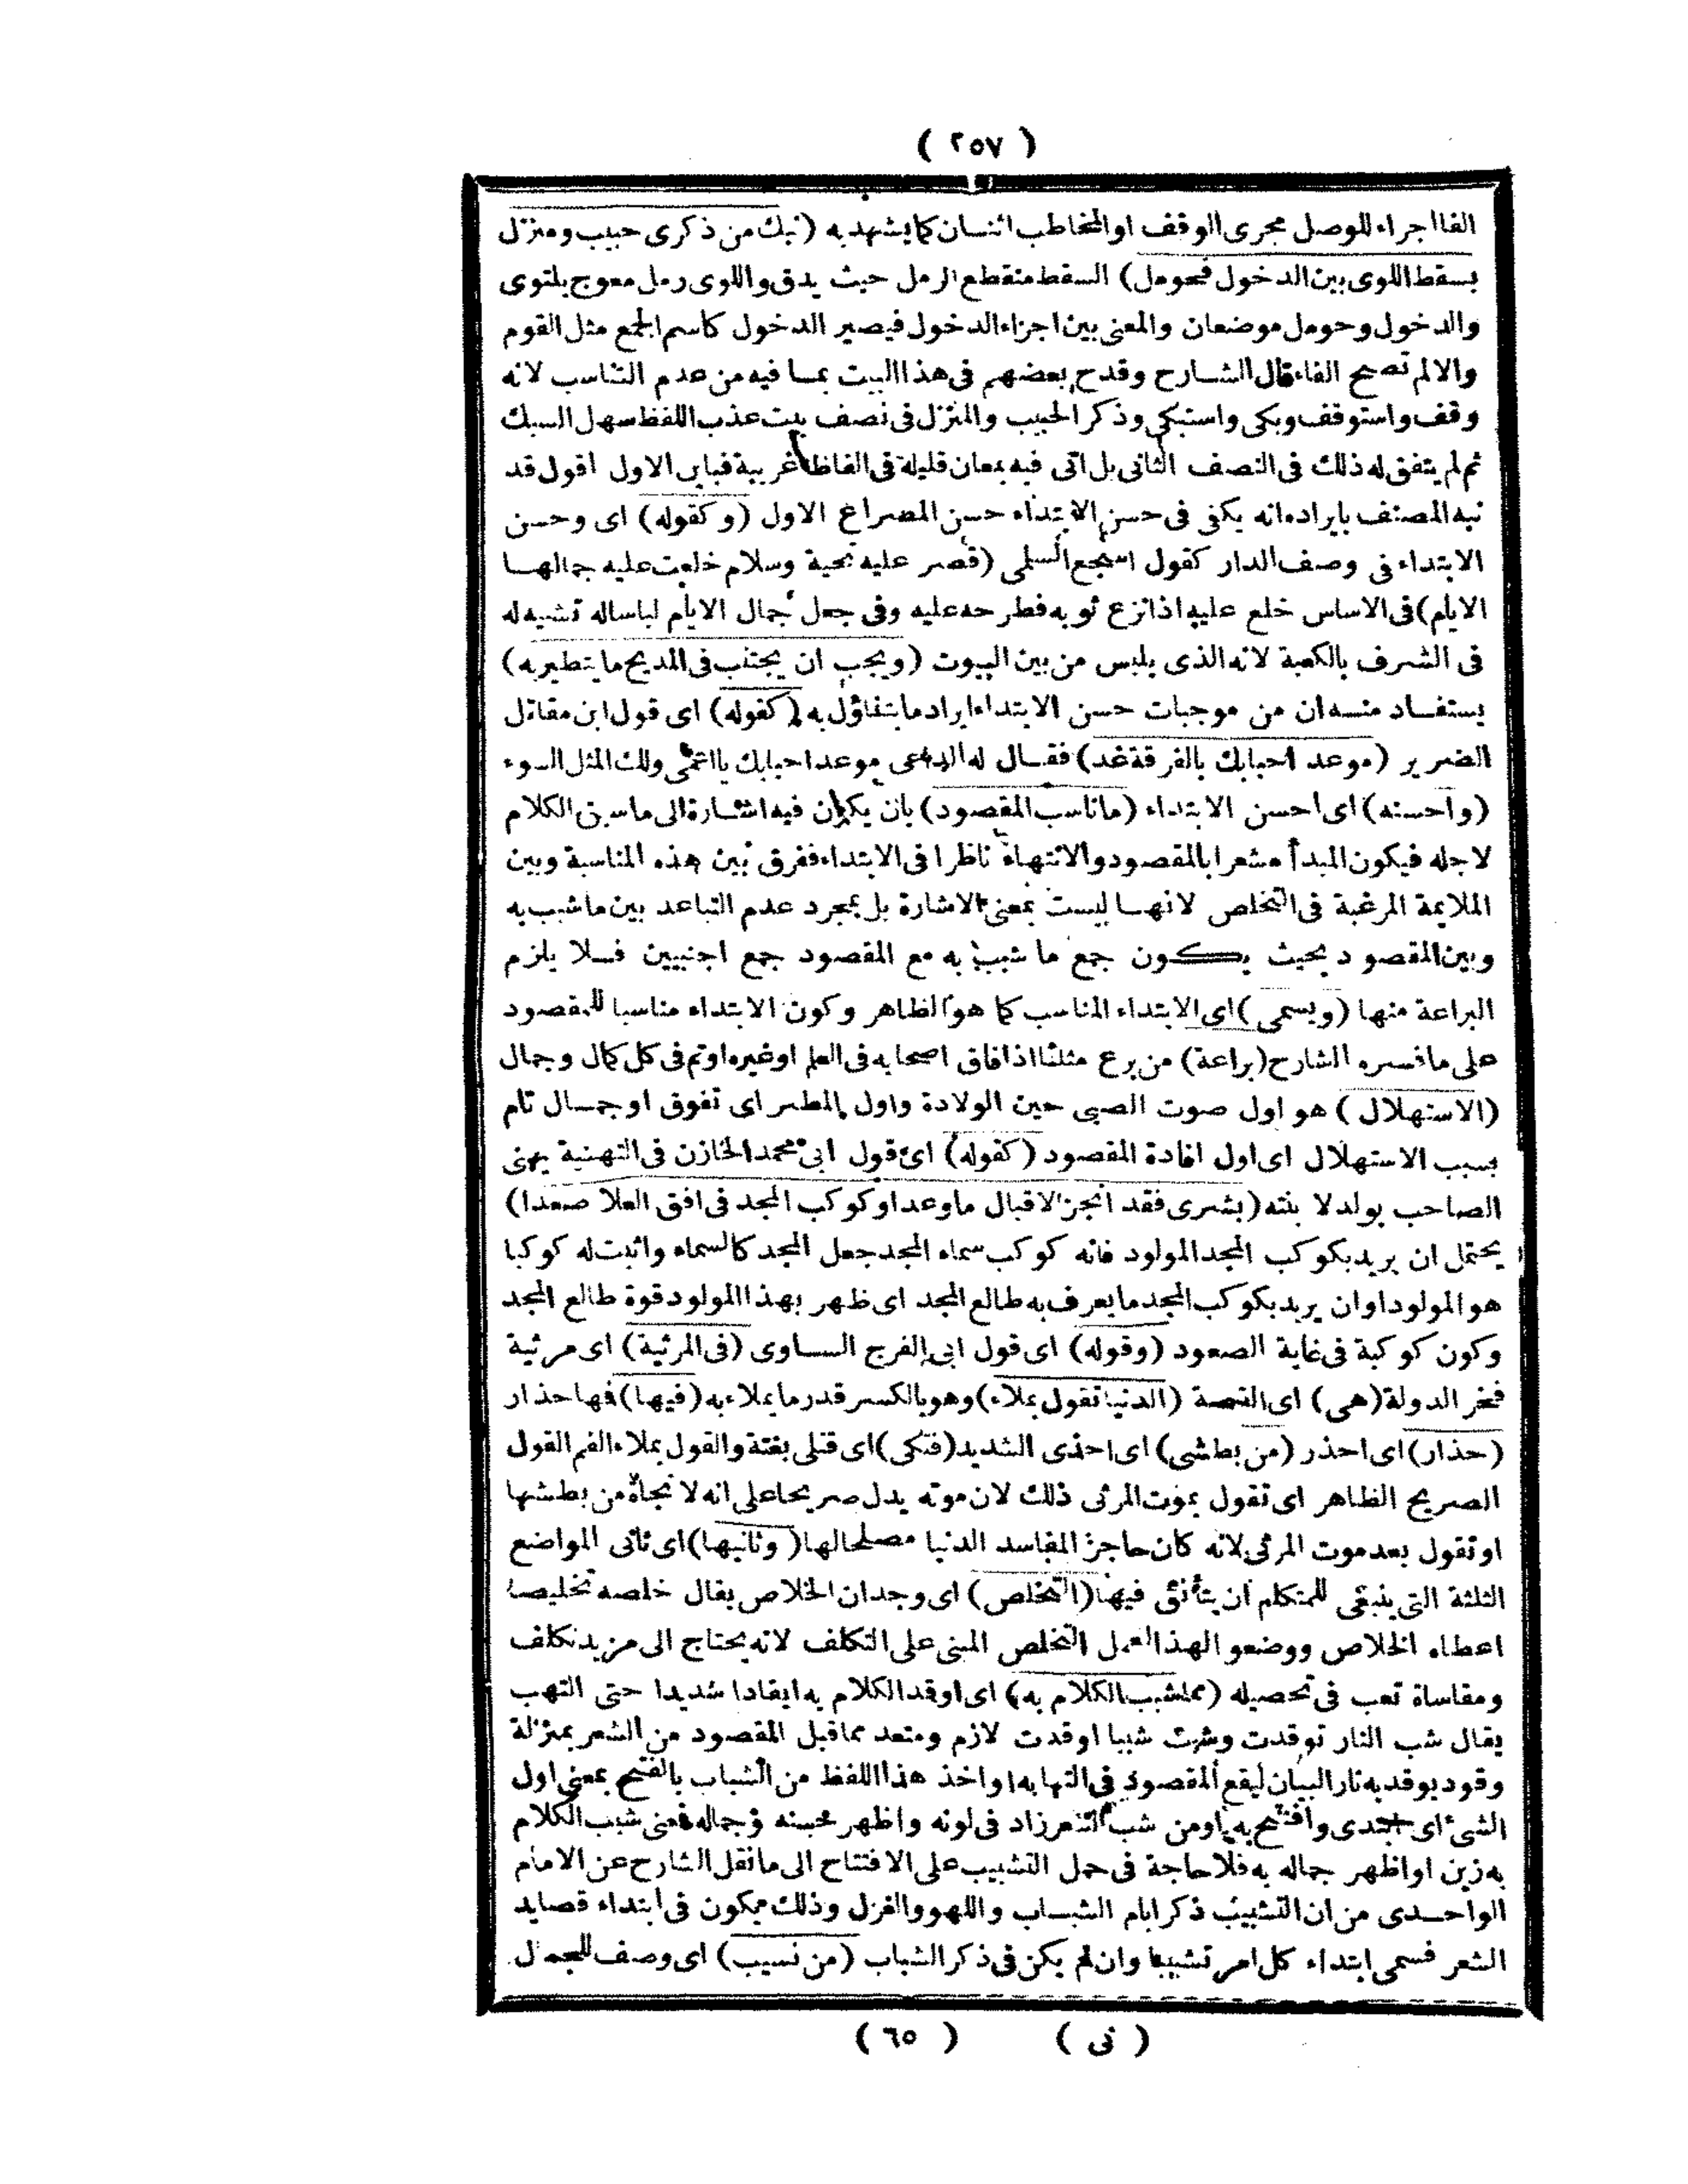 ( ٢٥٧ )
الفا اجراء للوصل مجرى الوقف او المخاطب اثنان كما يشهد به (نبك من ذكرى حبيب ومنزل
بسقط اللوى بين الدخول فحومل) السقط منقطع الرمل حيث يدق واللوى رمل معوج يلتوى
والدخول وحومل موضعان والمعنى بين اجزاء الدخول فيصير الدخول كاسم الجمع مثل القوم
والا لم تصح الفاء قال الشارح وقدح بعضهم فى هذا البيت بما فيه من عدم التناسب لانه
وقف واستوقف وبكى واستبكى وذكر الحبيب والمنزل فى نصف بيت عذب اللفظ سهل السبك
ثم لم يتفق له ذلك فى النصف الثانى بل اتى فيه بمعان قليلة فى الفاظ غريبة فباين الاول اقول قد
نبه المصنف بايراده انه يكفى فى حسن الابتداء حسن المصراع الاول (وكقوله) اى وحسن
الابتداء فى وصف الدار كقول اشجع السلمى (قصر عليه تحية وسلام خلعت عليه جمالها
الايام) فى الاساس خلع عليه اذا نزع ثوبه فطرحه عليه وفى جعل جمال الايام لباسا له تشبيه له
فى الشرف بالكعبة لانه الذى يلبس من بين البيوت (ويجب ان يجتنب فى المديح ما يتطير به)
يستفاد منه ان من موجبات حسن الابتداء ايراد ما يتفاؤل به (كقوله) اى قول ابن مقاتل
الضرير (موعد احبابك بالفرقة غد) فقال له الداعى موعد احبابك يا اعمى ولك المثل السوء
(واحسنه) اى احسن الابتداء (ما ناسب المقصود) بان يكون فيه اشارة الى ما سبق الكلام
لاجله فيكون المبدأ مشعرا بالمقصود والانتهاء ناظرا فى الابتداء ففرق بين هذه المناسبة وبين
الملايمة المرغبة فى التخلص لانها ليست بمعنى الاشارة بل بمجرد عدم التباعد بين ما شبب به
وبين المقصود بحيث يكون جمع ما شبب به مع المقصود جمع اجنبيين فلا يلزم
البراعة منها (ويسمى) اى الابتداء المناسب كما هو الظاهر وكون الابتداء مناسبا للمقصود
على ما فسره الشارح (براعة) من برع مثلثا اذا فاق اصحابه فى العلم او غيره او تم فى كل كمال وجمال
(الاستهلال) هو اول صوت الصبى حين الولادة واول المطر اى تفوق او جمال تام
بسبب الاستهلال اى اول افادة المقصود (كقوله) اى قول ابى محمد الخازن فى التهنية يهنى
الصاحب بولد لا بنته (بشرى فقد انجز الاقبال ما وعدا وكوكب المجد فى افق العلا صعدا)
يحتمل ان يريد بكوكب المجد المولود فانه كوكب سماء المجد جعل المجد كالسماء واثبت له كوكبا
هو المولود او ان يريد بكوكب المجد ما يعرف به طالع المجد اى ظهر بهذا المولود قوة طالع المجد
وكون كوكبة فى غاية الصعود (وقوله) اى قول ابى الفرج الساوى (فى المرثية) اى مرثية
فخر الدولة (هى) اى القصة (الدنيا تقول بملاء) وهو بالكسر قدر ما يملاء به (فيها) فها حذار
(حذار) اى احذر (من بطشى) اى اخذى الشديد (فتكى) اى قتلى بغتة والقول بملاء الفم القول
الصريح الظاهر اى تقول بموت المرثى ذلك لان موته يدل صريحا على انه لا نجاة من بطشها
او تقول بعد موت المرثى لانه كان حاجزا لمفاسد الدنيا مصلحا لها (وثانيها) اى ثانى المواضع
الثلثة التى ينبغى للمتكلم ان يتأنق فيها (التخلص) اى وجدان الخلاص يقال خلصه تخليصا
اعطاء الخلاص ووضعوا لهذا العمل التخلص المبنى على التكلف لانه يحتاج الى مزيد تكلف
ومقاساة تعب فى تحصيله (مما شبب الكلام به) اى اوقد الكلام به ايقادا شديدا حتى التهب
يقال شب النار توقدت وشبت شببا اوقدت لازم ومتعد مما قبل المقصود من الشعر بمنزلة
وقود يوقد به نار البيان ليقع المقصود فى التهابه او اخذ هذا اللفظ من الشباب بالفتح بمعنى اول
الشئ اى ابتدى وافتتح به او من شب الشعر زاد فى لونه واظهر محسنه وجماله فمعنى شبب الكلام
به زين او اظهر جماله به فلا حاجة فى حمل التشبيب على الافتتاح الى ما نقل الشارح عن الامام
الواحدى من ان التشبيب ذكر ايام الشباب واللهو والغزل وذلك يكون فى ابتداء قصايد
الشعر فسمى ابتداء كل امر تشبيبا وان لم يكن فى ذكر الشباب (من نسيب) اى وصف للجمال
( نى ) ( ٦٥ )